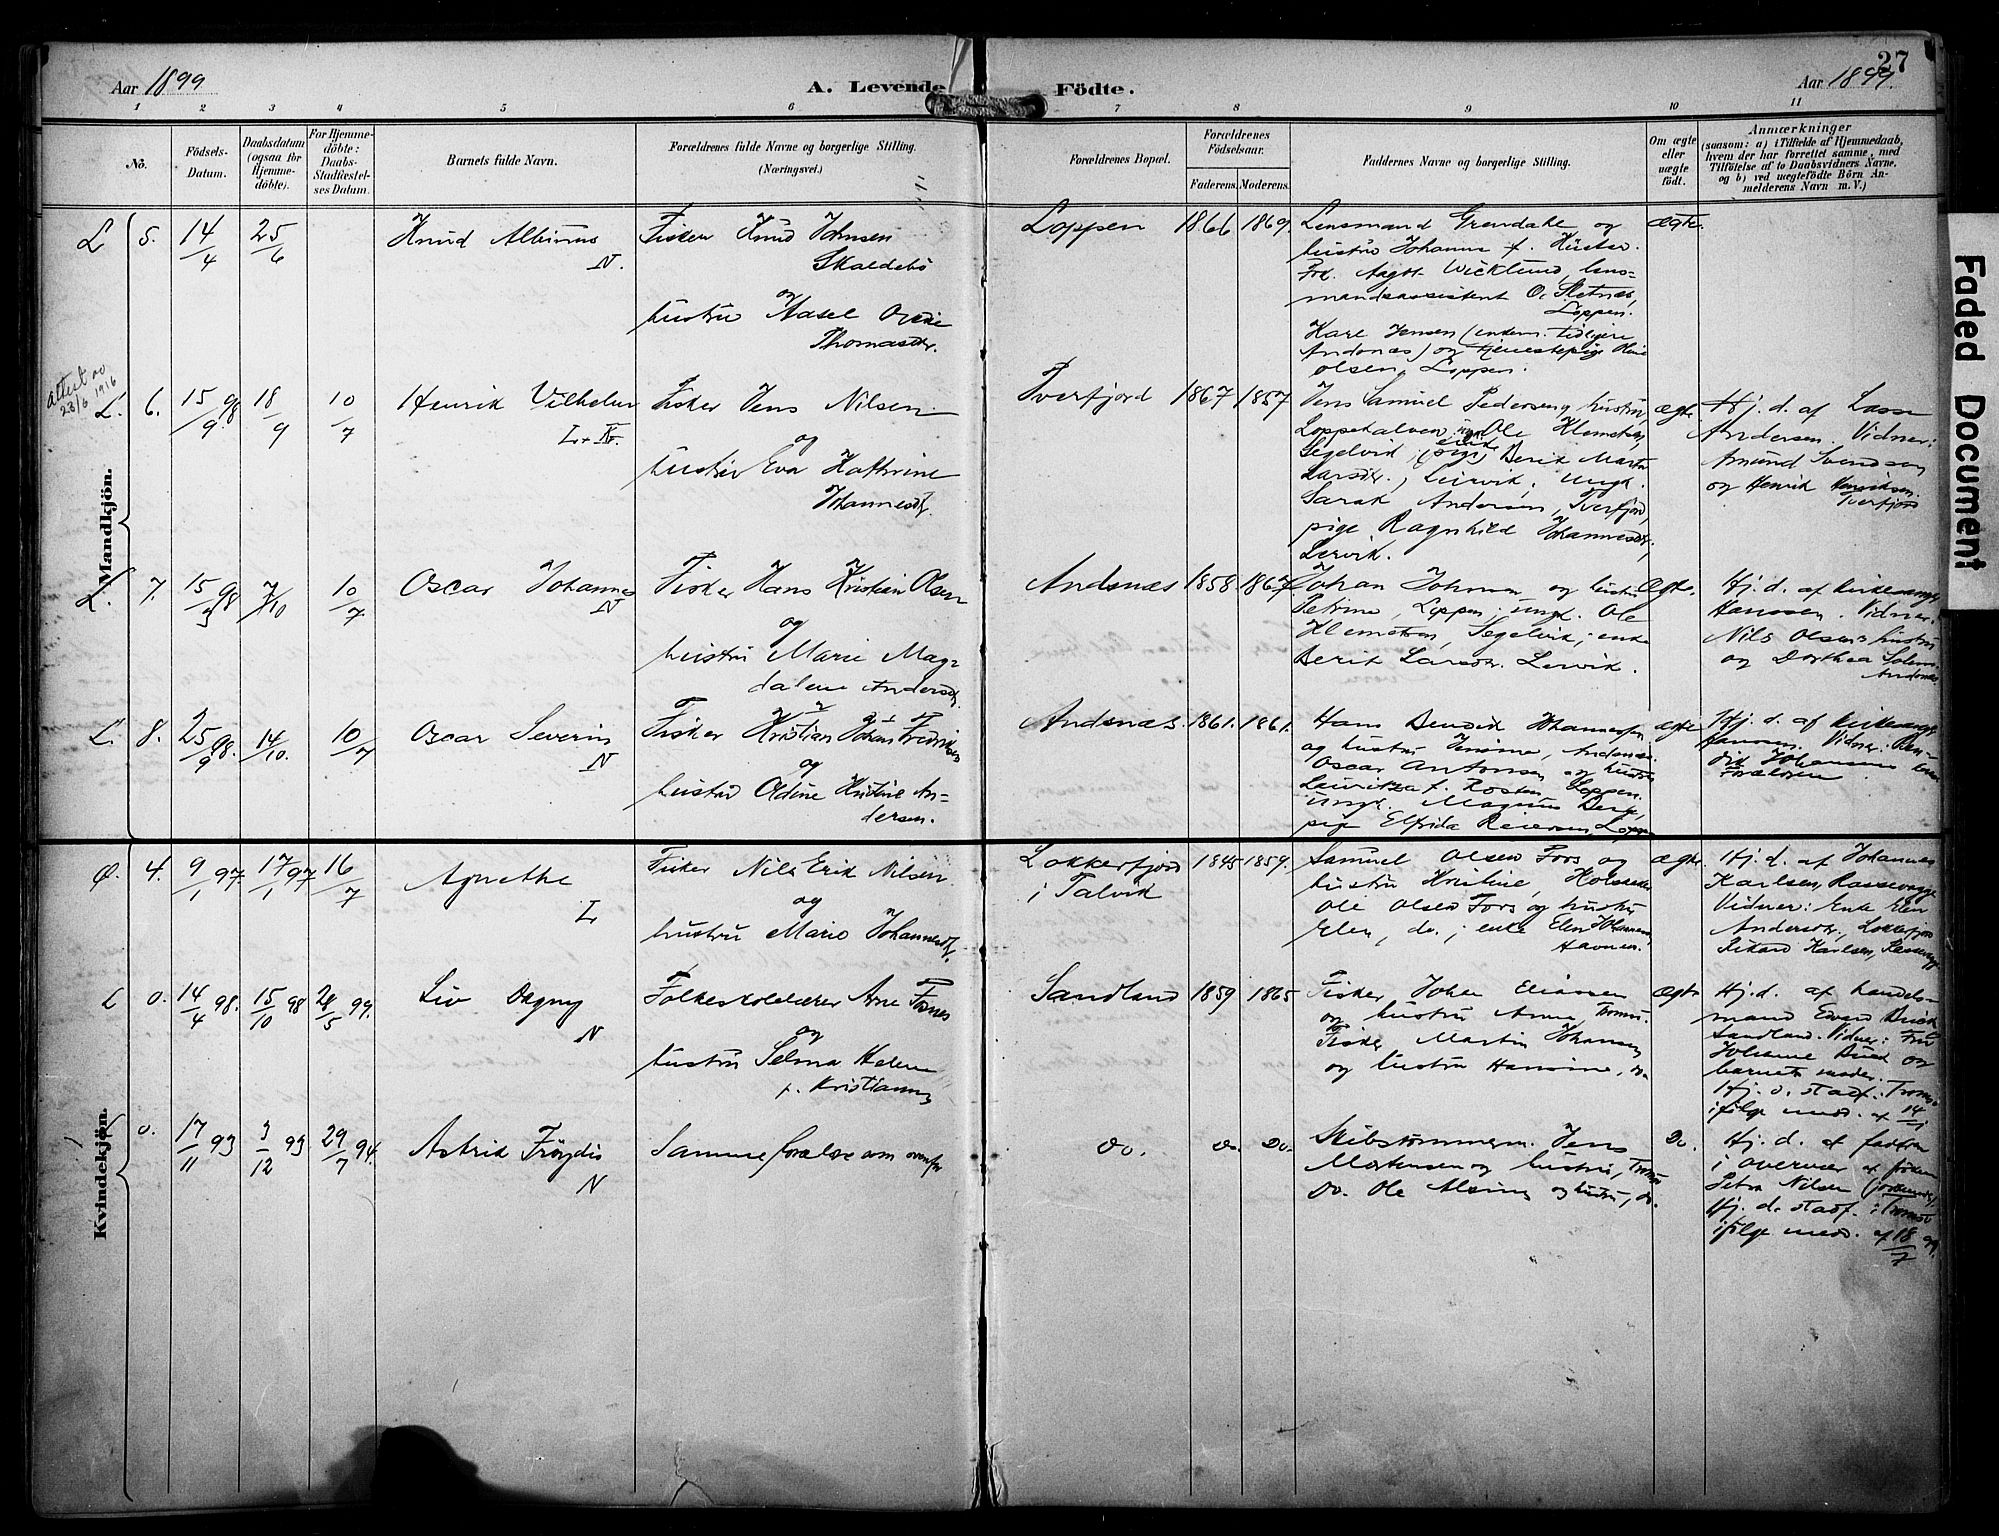 27
Aar 1899
A. Levende
Födte.
Aar 1899.
1 2 3 4 5 6 7 8 9 10 11
No.
Födsels-Datum.
Daabsdatum (ogsaa for Hjemme-döbte).
For Hjemme-döbte: Daabs-Stadfæstel-ses Datum.
Barnets fulde Navn.
Forældrenes fulde Navne og borgerlige Stilling.
(Næringsvei.)
Forældrenes Bopæl.
Forældrenes Födselsaar.
Faderens. Moderens.
Faddernes Navne og borgerlige Stilling.
Om ægte eller uægte födt.
Anmærkninger
(saasom: a) i Tilfælde af Hjemmedaab,
hvem der har forrettet samme, med
Tilföielse af to Daabsvidners Navne,
og b) ved uægtefödte Börn An-
melderens Navn m. V.)
Mandkjön.
L 5. 14/4 25/6
Knud Albinus
N.
Fisker Knud Johnsen
Skaldebø
og
hustru Aasel
Thomasdr.
Loppen 1866 1869.
Lensmand Grendahl og
hustru Johanne f.
Frk. Aagot Wicklund, lens-
mandsassistent O. Sletnæs,
Loppen.
Kare Jensen (
Andsnæs) og tjenestepige
Olsen, Loppen.
ægte.
Attest 23/6 1916
L. 6. 15/9 98 18/9 10/7
Henrik Vilhelm
L. + N.
Fisker Jens Nilsen
og
hustru Eva Kathrine
Johannesdtr.
Tverfjord 1867 1857
Jens Samuel Pedersen, hustru,
Loppekalven, Ole Klemetsen,
Segelvik, enke Berit Marta
Larsdr., Leirvik, ungk.
Sarak Andersen, Tverfjord,
pige Ragnhild Johannesdr.,
Lervik.
ægte
Hj. d. af Lasse
Andersen. Vidner:
Amund Svendsen
og Henrik Henriksen
Tverfjord
L. 7. 15/3 98 7/10 10/7
Oscar Johannes
N
Fisker Hans Kristian Olsen
og
hustru Marie Mag-
dalene Andersdr.
Andsnæs 1858 1867
Johan Johnsen og hustru
Petrine, Loppen; ungk. Ole
Klemetsen, Segelvik; enke
Berit Larsdr. Lervik.
Ægte.
Hj. d. af kirkesanger
Hanssen. Vidner:
Nils Olsens hustru
og Dorthea
Andsnæs.
L. 8. 25/9 98. 14/10. 10/7
Oscar Severin
N
Fisker Kristian Johan Fredriksen
og
hustru Oldine Kristine An-
dersen.
Andsnæs. 1861. 1861.
Hans Bendik Johannesen
og hustru Jensine, Andsnæs
Oscar Antonsen og hustru
Lauritza f. Loppen.
ungk. Magnus Berg,
pige Elfrida Reiersen, Loppen
ægte
Hj. d. af kirkesanger
Hanssen. Vidner: Ben-
dik Johansen
Forældrene
Kvindekjön.
Ø. 4. 9/1 97. 17/1 97 16/7
Agnethe
L
Fisker Nils Erik Nilsen
og
hustru Marie Johannesdtr.
Lokkerfjord
i Talvik
1845 1859.
Samuel Olsen Fors og
hustru Kristine,
Ole Olsen Fors og hustru
Elen, do.; enke Elen Johannesd.
Havnnes.
ægte.
Hj. d. af Johannes
Karlsen, Rassevagge
Vidner: Enke Elen
Andersdr., Lokkerfjord
Rikard Karlsen, Rassevagge
L 0. 14/4 98. 15/10 98 28/5 99.
Liv Dagny
N
Folkeskolelærer Arne Fosnes
og
hustru Selma Helene
f. Kristiansen
Sandland 1859 1865
Fisker Johan Eliassen
og hustru Anna, Tromsø.
Fisker Martin Johansen
og hustru Hansine, do.
Ægte
Hj. d. af handels-
mand Edvard Buck
Sandland. Vidner: Fru
Johanne Buck og
barnets moder.
Hj. d. stadf. i Tromsø
ifølge medd. af 14/
L 0. 17/11 93 3/12 93. 29/7 94.
Astrid Frøydis
N
Samme forældre som ovenfor
do. do. do.
Skibstømmerm. Jens
Mortensen og hustru, Tromsø
Do. Ole Alsing og hustru, do.
Do.
Hj. d. af fadren
i overvær af
Petra Nilsen (jordemoder)
Hj. d. stadf. i Tromsø
ifølge medd. af 18/7 99.
Faded Document